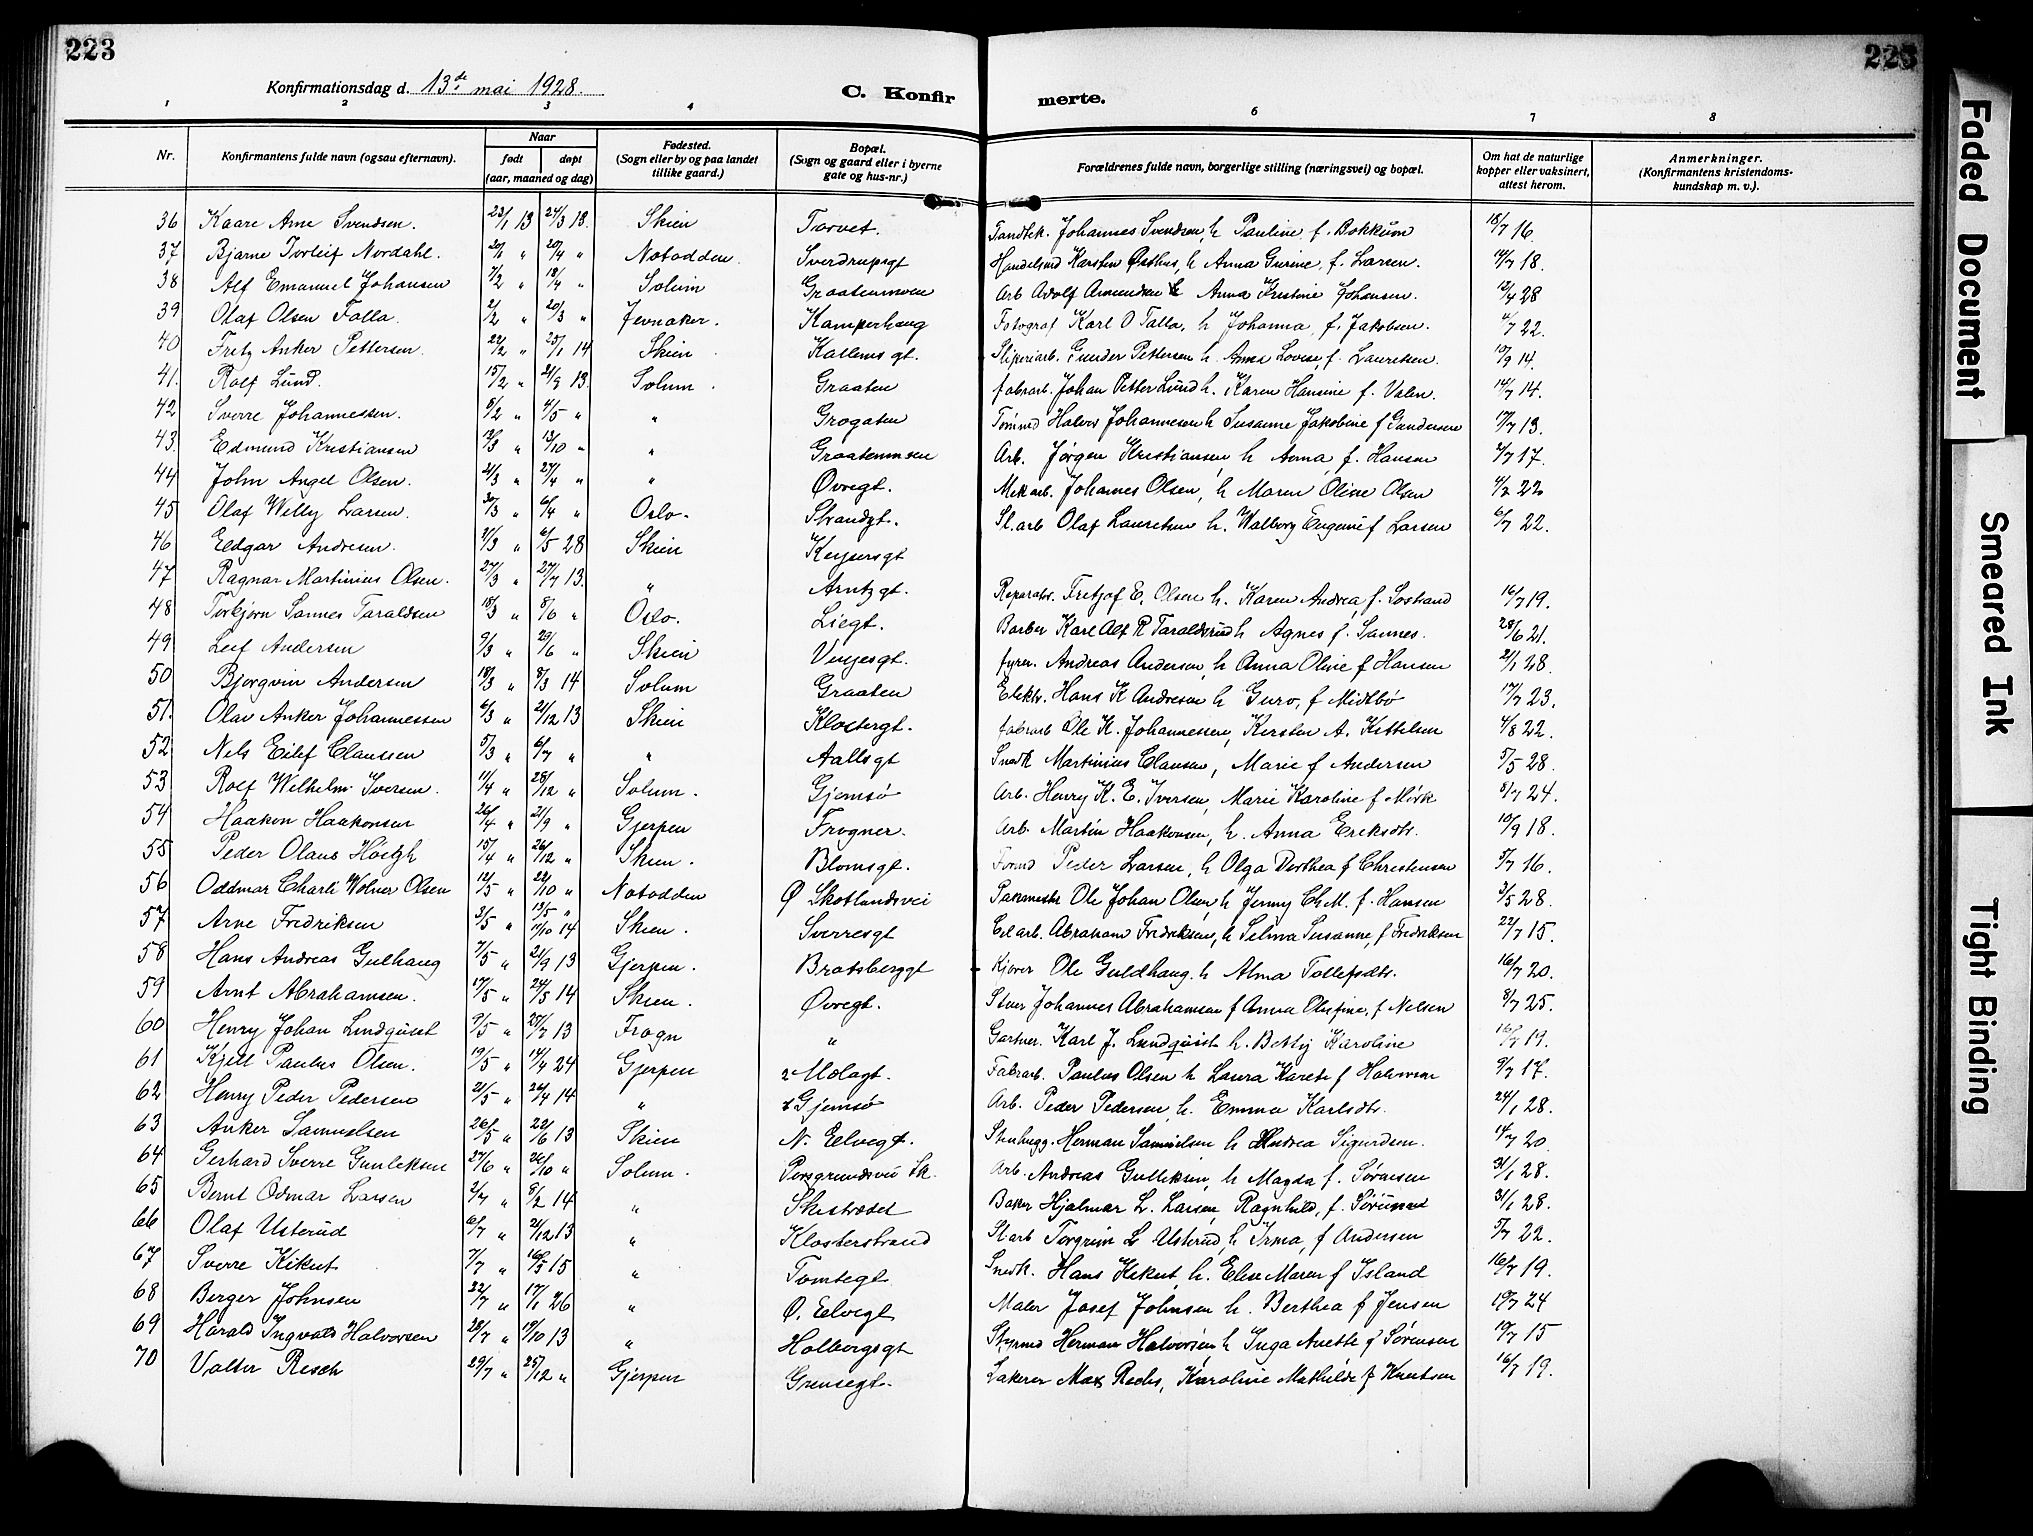 223
223
Konfirmationsdag d. 13de mai 1928.
C. Konfir
merte.
1 2 3 4 6 7 8
Nr.
Konfirmantens fulde navn (ogsaa efternavn).
Naar
født
døpt
(aar, maaned og dag)
Fødested.
(Sogn eller by og paa landet
tillike gaard.)
Bopæl.
(Sogn og gaard eller i byerne
gate og hus-nr.)
Forældrenes fulde navn, borgerlige stilling (næringsvei) og bopæl.
Om hat de naturlige
kopper eller vaksinert,
attest herom.
Anmerkninger.
(Konfirmantens kristendoms-
kundskap m. v.).
36 Kaare Arne Svendsen. 23/1 13 24/3 13. Skien Torvet. Tandtek. Johannes Svendsen, h Pauline f. Bokkum 18/7 16.
37 Bjarne Torleif Nordahl. " 20/4 " Notodden. Sverdrupsgt Karsten Østhus, h Anna Gurine, f. Larsen. 18.
38 Alf Emanuel Johansen 7/2 " 18/4 " Solum Graatenmoen Arb Adolf Amundsen h Anna Kristine Johansen. 12/4 28
39 Olaf Olsen Talla. 2/2 " 20/3 " Jevnaker. Kamperhaug Fotograf Karl O Talla, h Johanna, f. Jakobsen. 22.
40 Fritz Anker Pettersen 22/2 " 25/1 14 Skien Kallemsgt. Sliperiarb. Gunder Pettersen h Anna Lovise, f. Lauretsen. 10/9 14.
41. Rolf Lund. 15/2 " 21/9 13. Solum. Graaten fabrarb. Johan Petter Lund h. Karen Hansine f. Valen. 14/7 14.
42 Sverre Johannessen. 8/2 " 4/5 " " Grogaten Tømmd Halvor Johannesen h Susanne Jakobine f Gundersen 17/7 13.
43. Edmund Kristiansen 12/3 " 12/10 " " Graatenmoen Arb. Jørgen Kristiansen, h Anna, f. Hansen 17.
44 John Angel Olsen. 21/3 " 27/4 " " Øvregt. Mek arb. Johannes Olsen, h Maren Oline Olsen 4/2 22
45 Olaf Willy Larsen. 30/3 " 6/4 " Oslo. Strandgt. St. arb Olaf Lauretsen h. Walborg Eugenie f Larsen 6/7 22.
46 Eldgar Andresen. 3 " 6/5 28 Skien Keysersgt
47 Ragnar Martinius Olsen. 27/3 " 27/7 13. " Arntzgt. Reparatr. Fritjof E. Olsen h. Karen Andrea, f. Sostrand 16/7 19.
48 Torbjørn Sannes Taraldsen 18/3 " 8/6 " Oslo. Liegt. Barber Karl Alf R Taraldsrud h Agnes f. Sannes. 28/6 21.
49 Leif Andersen 9/3 " 29/6 " Skien Vinjesgt. fyrer. Andreas Andersen, h Anna Oline f Hansen 21/1 28.
50 Bjørgvin Andersen 18/3 " 8/3 14 Solum Graaten Elektr. Hans K Andresen h Guro, f Midtbø 17/7 23.
51. Olav Anker Johannessen 6/3 " 21/12 13 Skien Klostergt. fabrarb Ole K. Johannessen, Kirsten A. Kittelsen 4/8 22.
52 Nils Eilef Claussen 5/3 " 6/7 " " Aallsgt Snedk Martinius Clausen, Marie f Andersen 5/5 28.
53 Rolf Wilhelm Iversen. 11/4 " 28/12 " Solum. Gjemsø Arb. Henry K. E. Iversen, Marie Karoline f Mørk 8/7 24.
54 Haakon Haakonsen 26/4 " 21/9 " Gjerpen Frogner. Arb. Martin Haakonsen, h. Anna Eriksdtr. 10/9 18.
55 Peder Olaus Høigh 15/4 " 26/12 " Skien. Blomsgt. Formd Peder Larsen, h Olga Dorthea f Christensen 5/7 16.
56 Oddmar Charli Wolner Olsen 12/5 " 22/10 " Notodden Ø Skotlandsvei Pakmestr Ole Johan Olsen, h Jenny Ch. M. f. Hansen 3/5 28.
57 Arne Fredriksen 3/5 " 13/5 " 11/10 14 Skien. Sverresgt Eil arb. Abraham Fredriksen, h Selma Susanne, f Fredriksen 22/7 15.
58 Hans Andreas Gulhaug 7/5 " 21/9 13 Gjerpen. Bratsberggt Kjører Ole Guldhaug. h Alma Tollefsdtr. 16/7 20.
59 Arnt Abrahamsen. 17/5 " 24/5 14 Skien. Øvregt. Stuer Johannes Abrahamsen f Anna Olufine, f Nelsen 8/7 25.
60 Henry Johan Lundquist 9/5 " 27/7 13 Frogn " Gartner. Karl J. Lundquist h. Betty Karoline 16/7 19.
61 Kjell Paulus Olsen. 19/5 " 14/4 24 Gjerpen 2 Molagt. Fabrarb. Paulus Olsen h Laura Karete f Halvorsen 9/7 17.
62 Henry Peder Pedersen 21/5 " 26/4 14 " Gjemsø Arb. Peder Pedersen, h. Emma Karlsdtr. 24/1 28.
63 Anker Samuelsen 26/5 " 22/6 13 Skien N. Eelvegt. Stenhugg. Herman Samuelsen h Andrea Sigurdsen. 14/7 20.
64 Gerhard Sverre Gunleksen 27/6 " 26/10 " Solum. Porsgrundsvei Sk. Arb. Andreas Gulleksen, h Magda f. Sørensen 31/1 28.
65 Bernt Odmar Larsen 2/7 " 8/2 14 " Skistredet Baker Hjalmar L. Larsen, Ragnhild, f. Sørensen 31/1 28.
66 Olaf Usterud 6/7 " 21/12 13 " Klosterstrand St arb Torgrim L Usterud, h Irma, f Andersen 5/7 22.
67 Sverre Kikut 7/7 " 16/5 15 " Tomtegt Snedk. Hans Kikut, h. Elise Maren f Island 16/7 19.
68 Berger Johnsen 22/7 " 17/1 26 " Ø. Eelvegt Maler Josef Johnsen h. Berthea f Jensen 19/7 24
69 Harald Ingvald Halvorsen 28/7 " 19/10 13 " Holbergsgt Styrmd Herman Halvorsen h Inga Anette f Sørensen 19/7 15
70 Valter Resch 29/7 " 25/12 " Gjerpen Grensegt. Lakerer Max Rechs, Karoline Mathilde f Knutsen 16/7 19.
Faded Document
Smeared Ink
Tight Binding